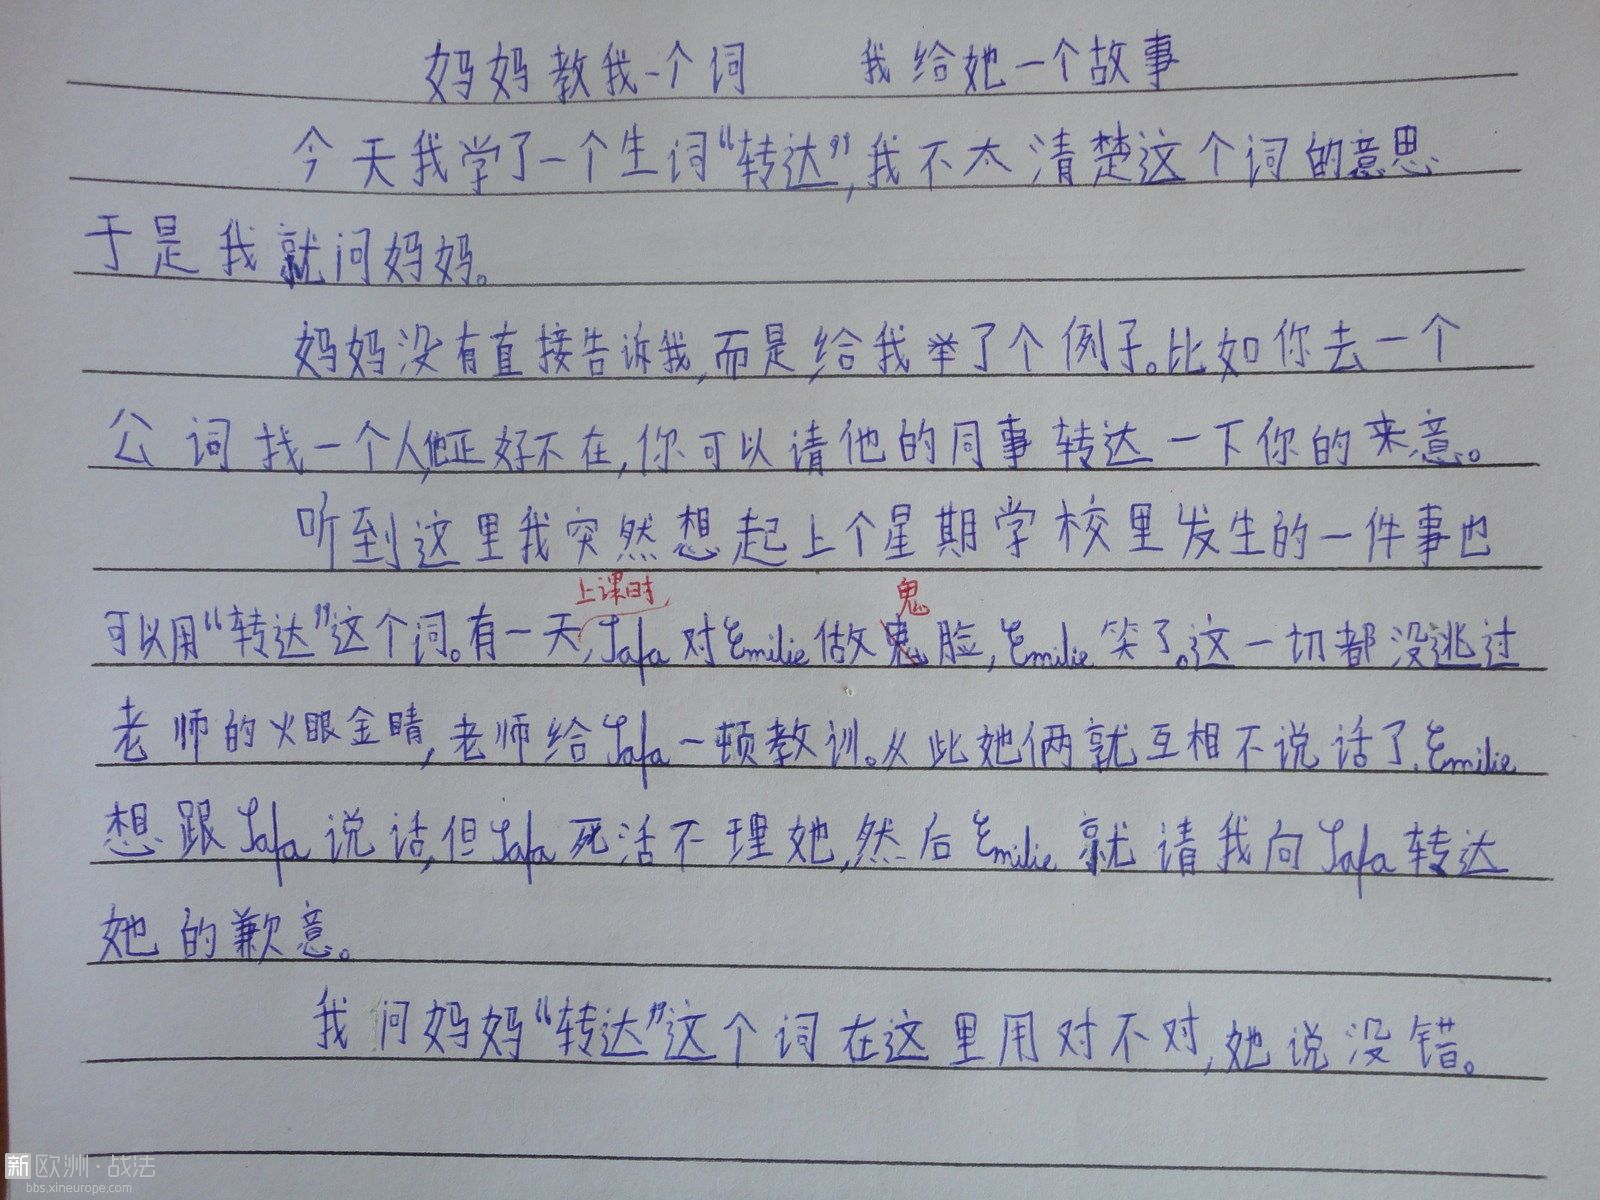 妈妈教我一个词 我给她一个故事
今天我学了一个生词“转达”,我不太清楚这个词的意思
于是我就问妈妈。
妈妈没有直接告诉我,而是给我举了个例子。比如你去一个
公词找一个人,他正好不在,你可以请他的同事转达一下你的来意。
听到这里我突然想起上个星期学校里发生的一件事也
上课时 鬼
可以用“转达”这个词。有一天,Jafa对Emilie做鬼脸,Emilie笑了。这一切都没逃过
老师的火眼金睛,老师给Jafa一顿教训。从此她俩就互相不说话了.Emilie
想跟Jafa说话,但Jafa死活不理她,然后Emilie就请我向Jafa转达
她的歉意。
我问妈妈“转达”这个词在这里用对不对,她说没错。
新欧洲·战法
bbs.xineurope.com